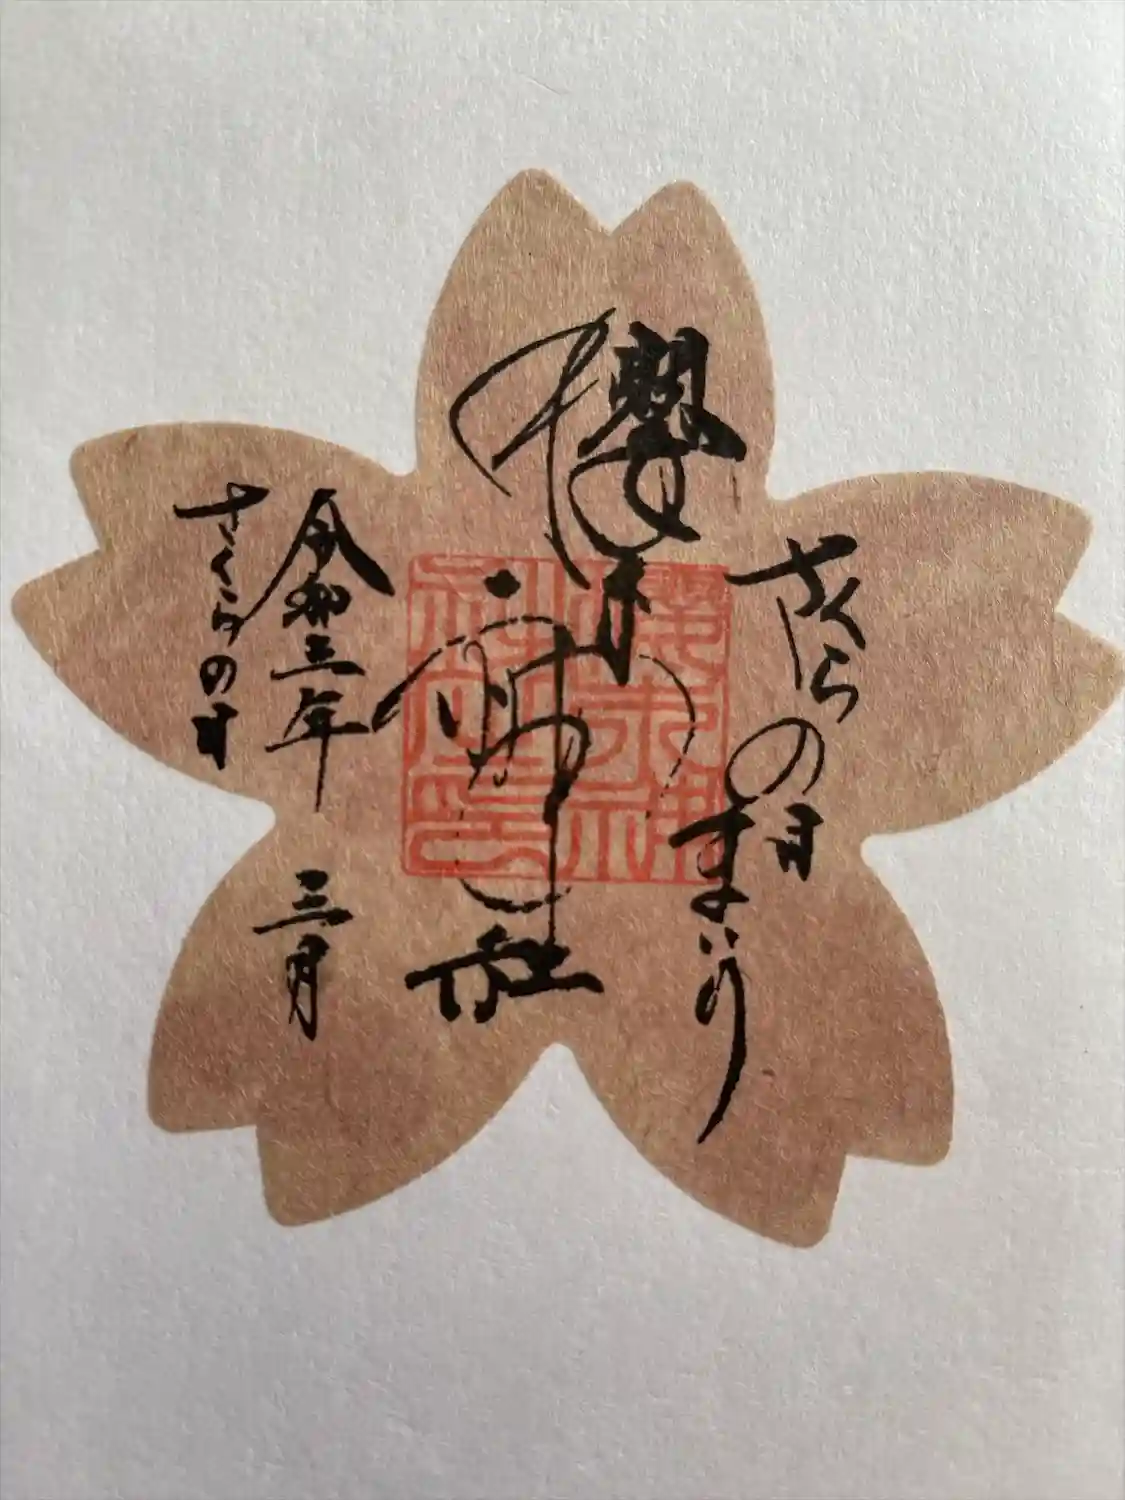 さくらの日
まいり
櫻木神社
櫻木神
社之印
令和三年 三月
さくらの日